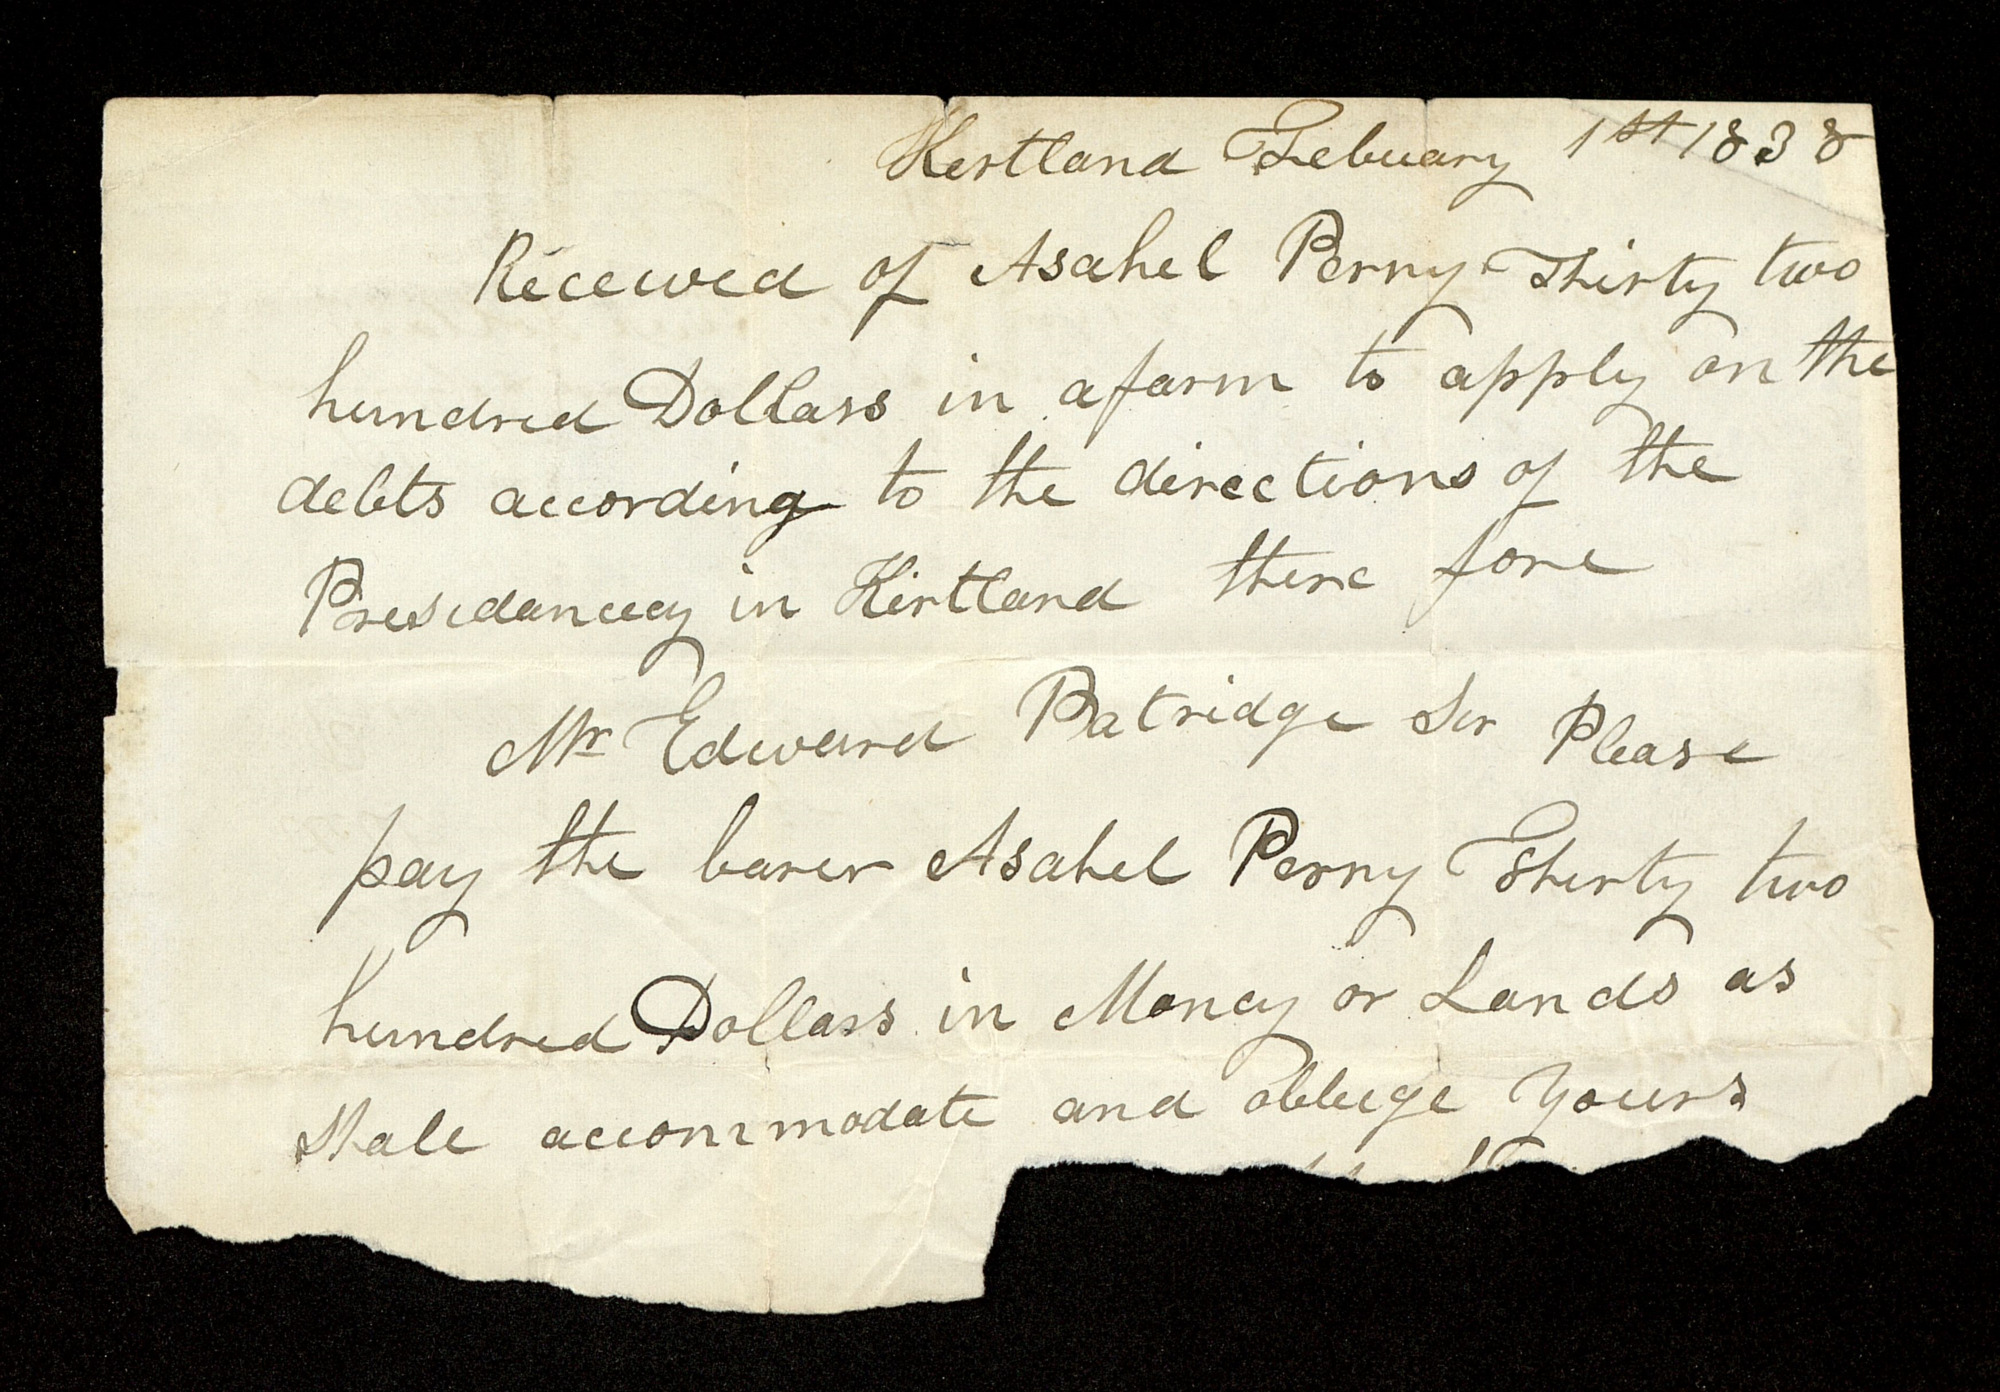 Kertland Febuary 1st 1838
Received of Asahel Perry Thirty two
hundred Dollars in a farm to apply on the
debts according to the directions of the
Presedancey in Kirtland there fore
Mr Edward Patridge Sir Please
pay the barer Asahel Perry Thirty two
hundred Dollars in Money or Lands as
Shale accommodate and obluge Yours